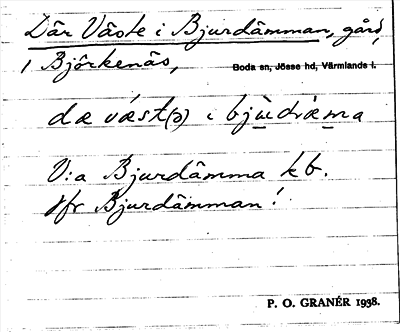 Där Väste i Bjurdämman, gård,
i Björkenäs,
Boda sn, Jösse hd, Värmlands l.
dæ væ̀st(ə) ɩ bjụ̀dræ̀m̥a
V:a Bjurdämma kb.
jfr Bjurdämman!
P. O. GRANÉR 1938.